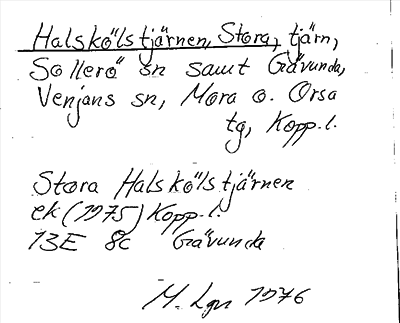 Halskölstjärnen, Stora, tjärn,
Sollerö sn samt Gävunda,
Venjans sn, Mora o. Orsa
tg, Kopp.l.
Stora Halskölstjärnen
ek (1975) Kopp.l.
13E 8c Gävunda
M. Lgn 1976